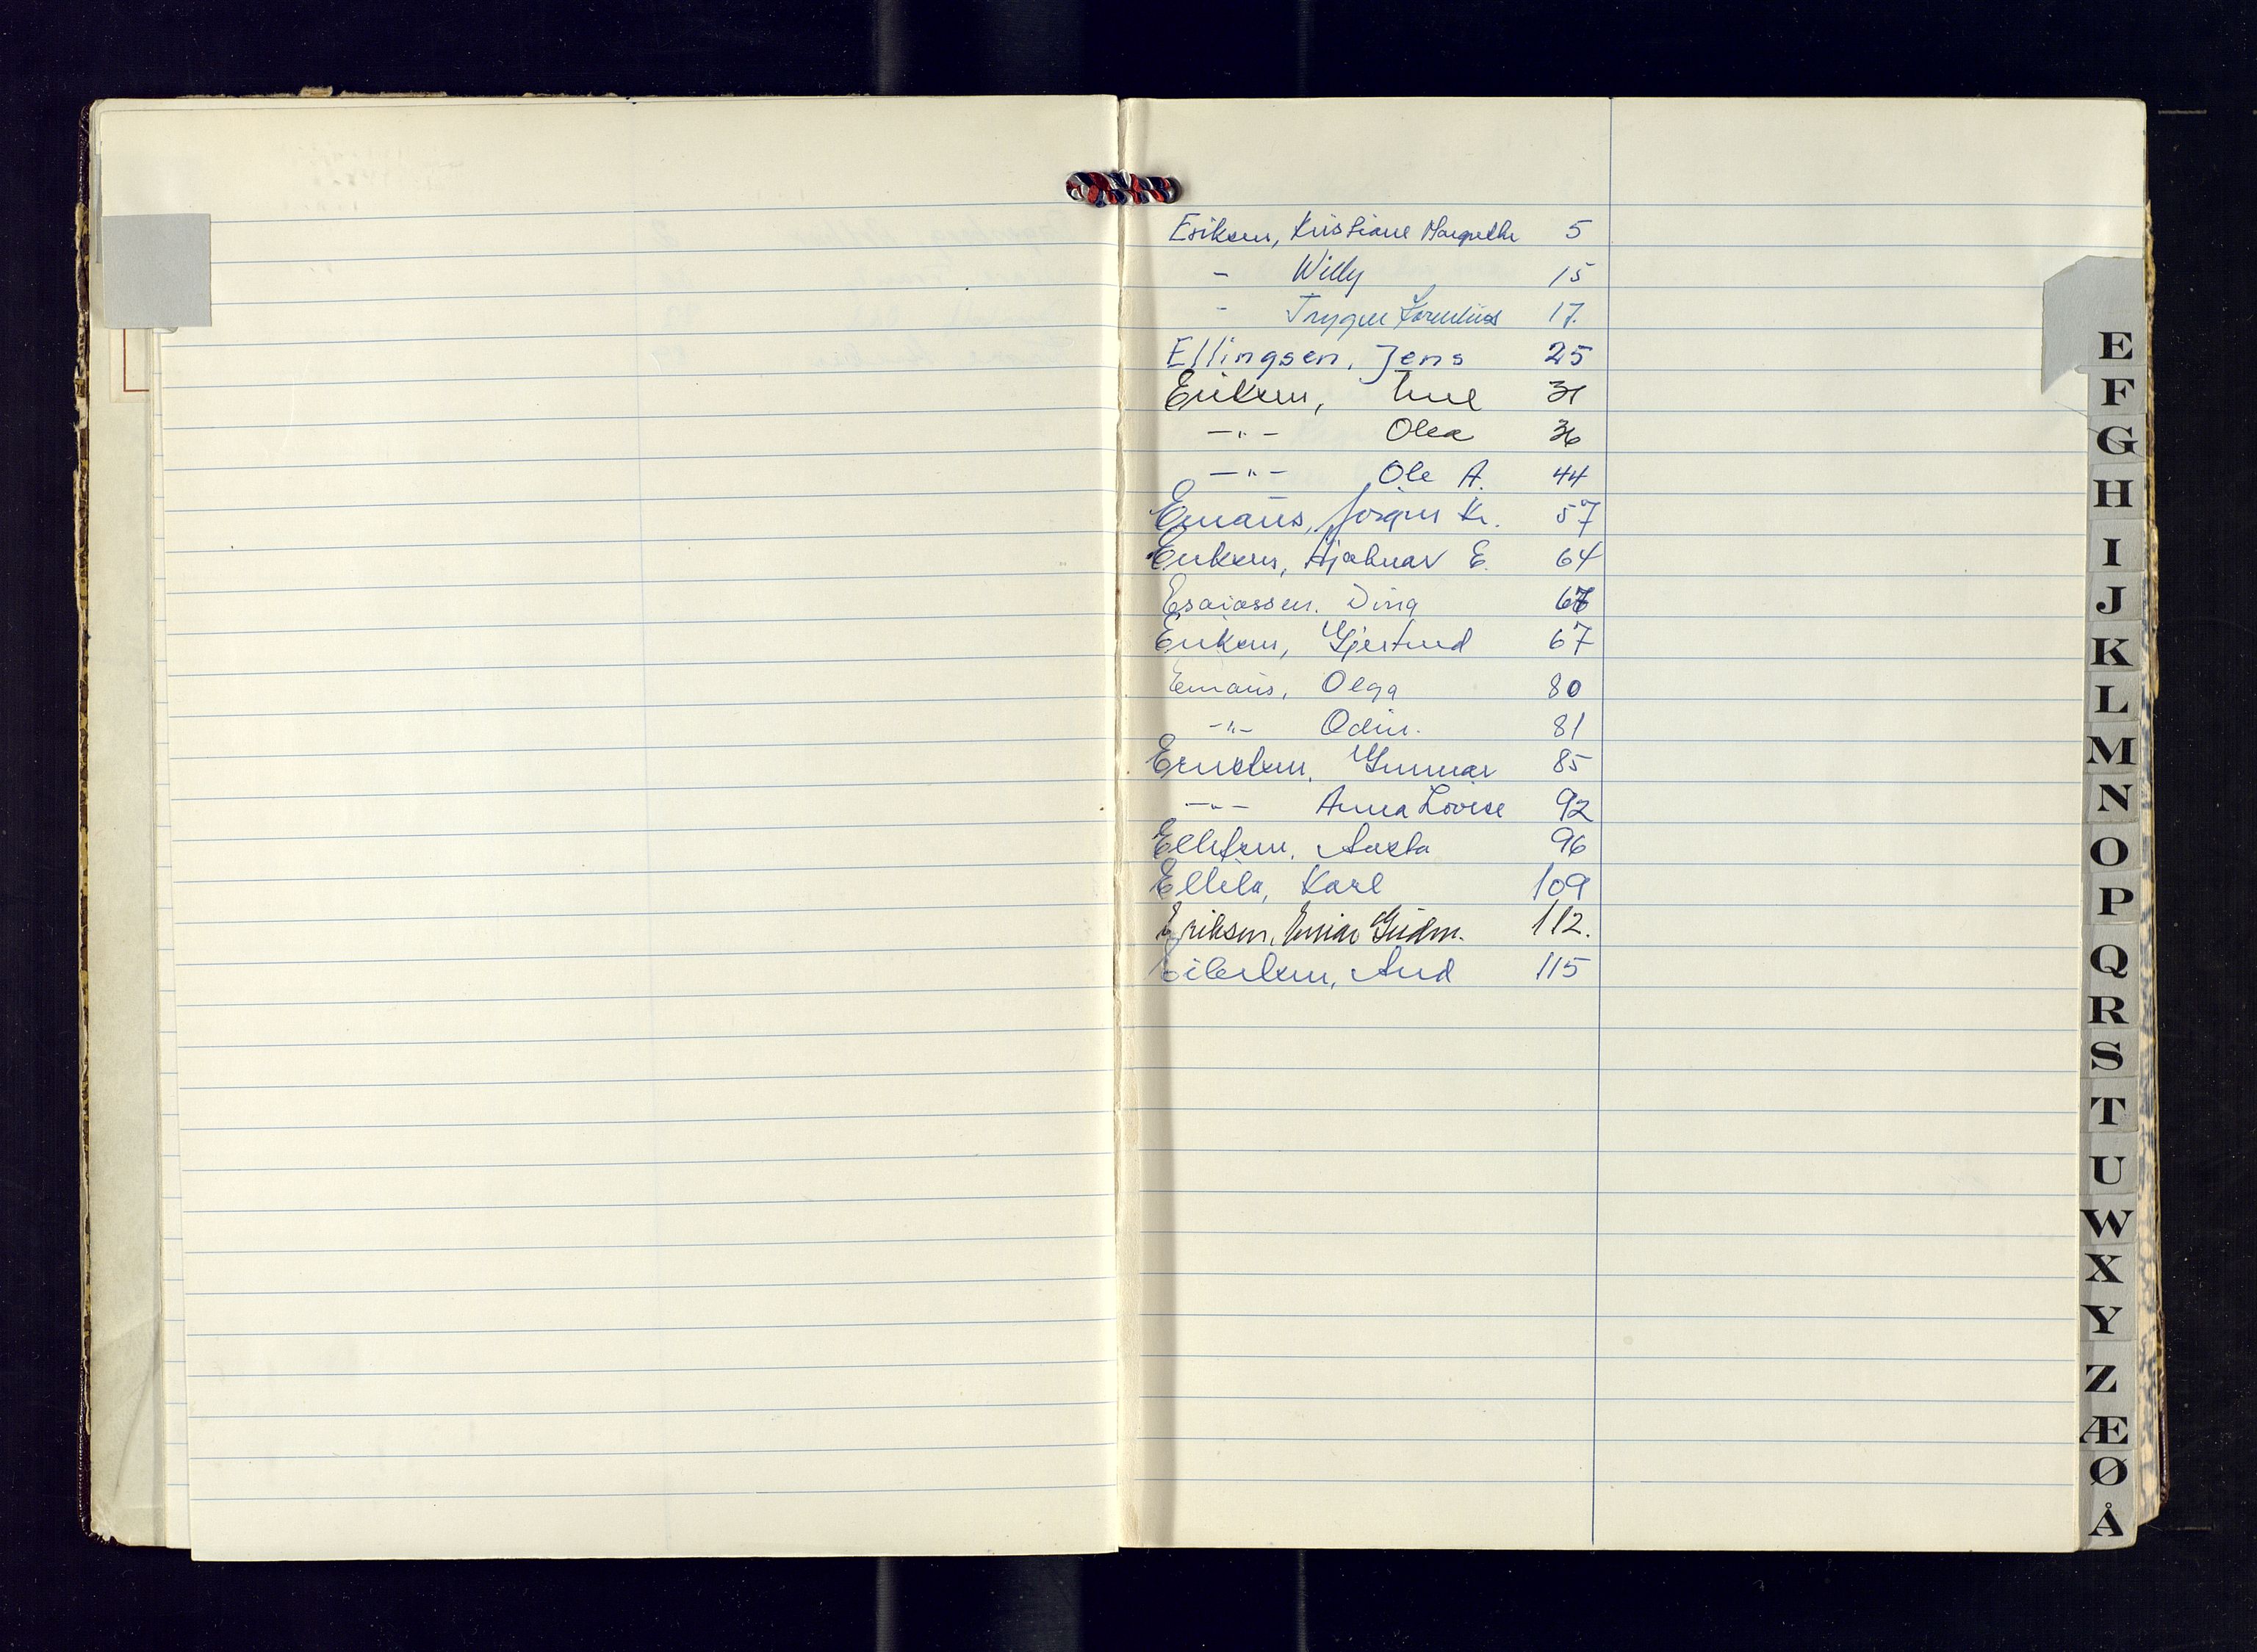 Eriksen, Kristiane Margrethe 5
- Willy 15
- Trygve Kornelius 17.
Ellingsen, Jens 25
Eriksen, Tine 31
-"- Olea 36
-"- Ole A. 44
Emaus, Jörgen Kr. 57
Eriksen, Hjalmar E. 64
Esaiassen. Dina 67
Eriksen, Gjertrud 67
Emaus, Olga 80
-"- Odin. 81
Ernstsen, Gunnar 85
-"- Anna Lovise 92
Ellefsen, Aasta 96
Ellila, Karl 109
Eriksen, Einar Guidm. 112.
Eilertsen, Aud 115
E
F
G
H
I
J
K
L
M
N
O
P
Q
R
S
T
U
W
X
Y
Z
Æ
Ø
Å